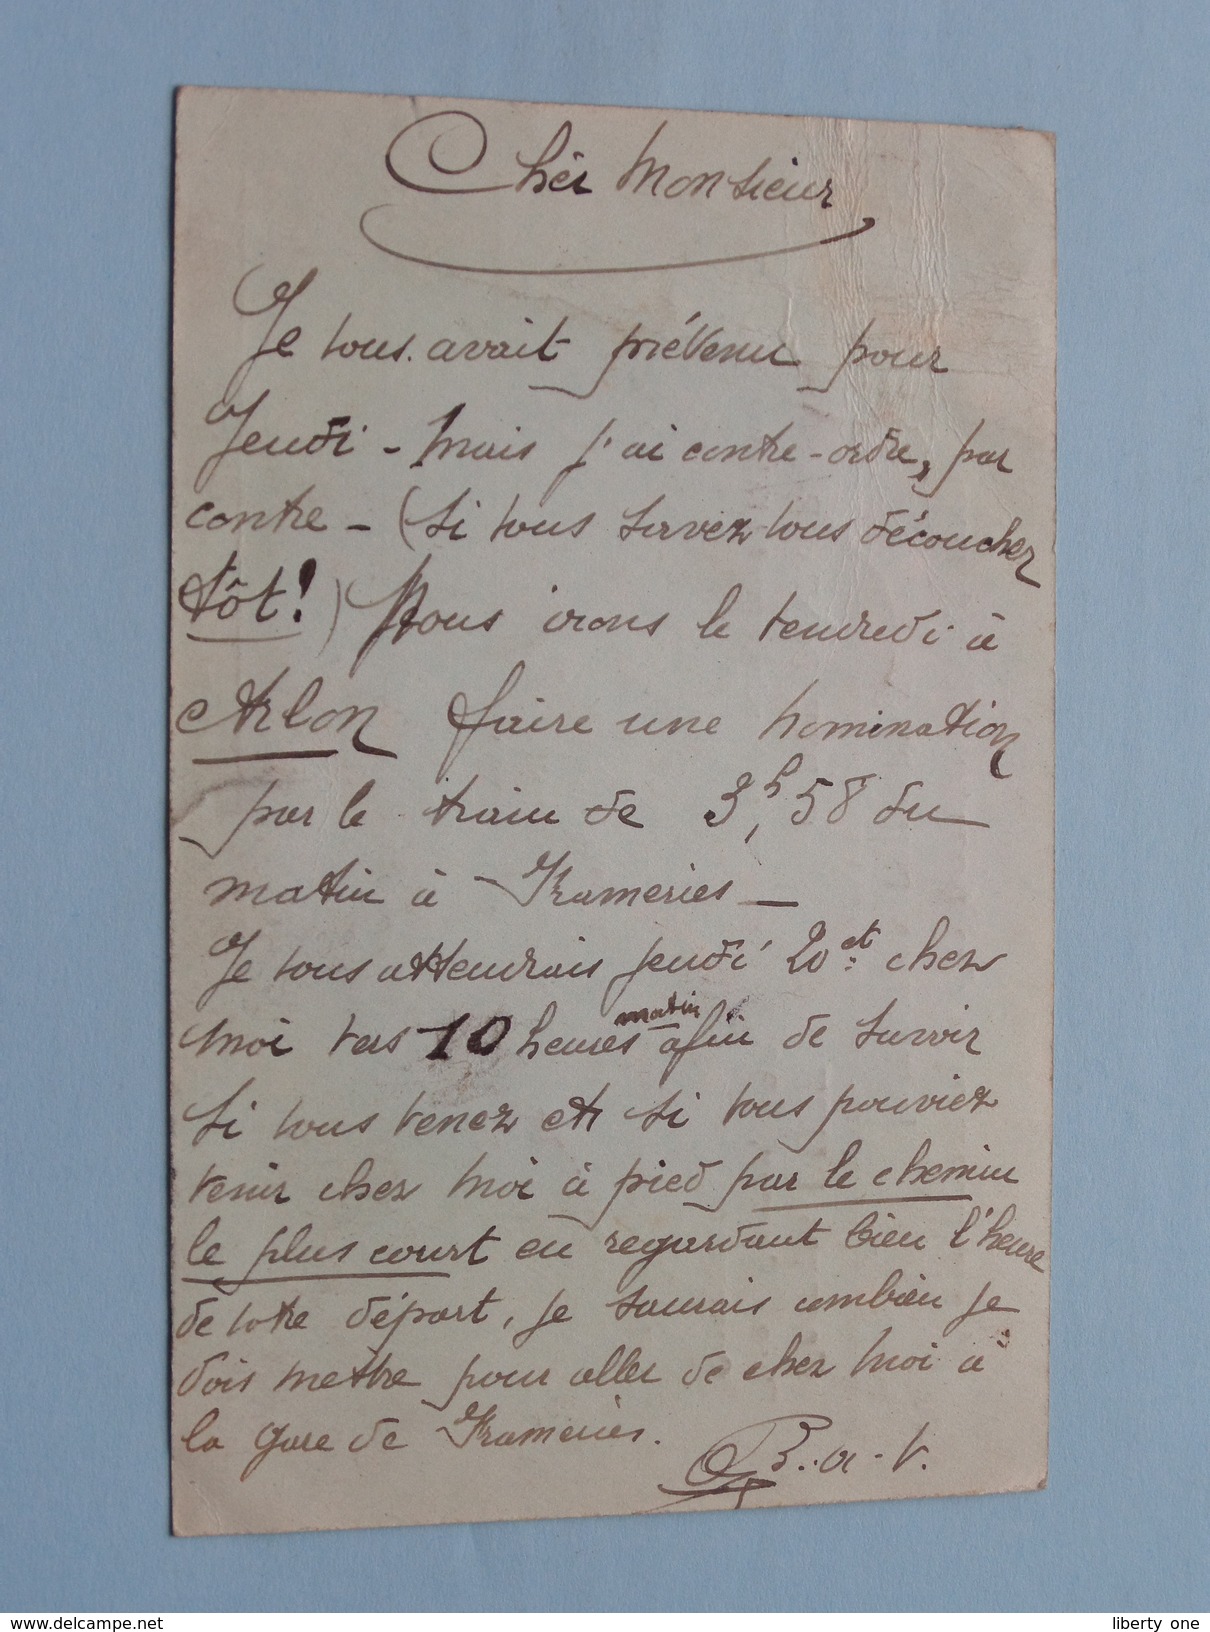 Chér Monsieur
Je vous avait prévenu pour
Jeudi - Mais j'ai contre-ordre, par
contre - (si vous savez vous découcher
tôt!) Nous irons le vendredi à
Arlon faire une nomination
par le train de 3h,58 du
matin à Frameries -
Je vous attendrais jeudi 20 ct. chez
moi vers 10 heures matin afin de savoir
si vous venez et si vous pouviez
venir chez moi à pied par le chemin
le plus court en regardant bien l'heure
de votre départ, je saurais combien je
dois mettre pour aller de chez moi à
la gare de Frameries.
B. a. V.
www.delcampe.net
liberty_one